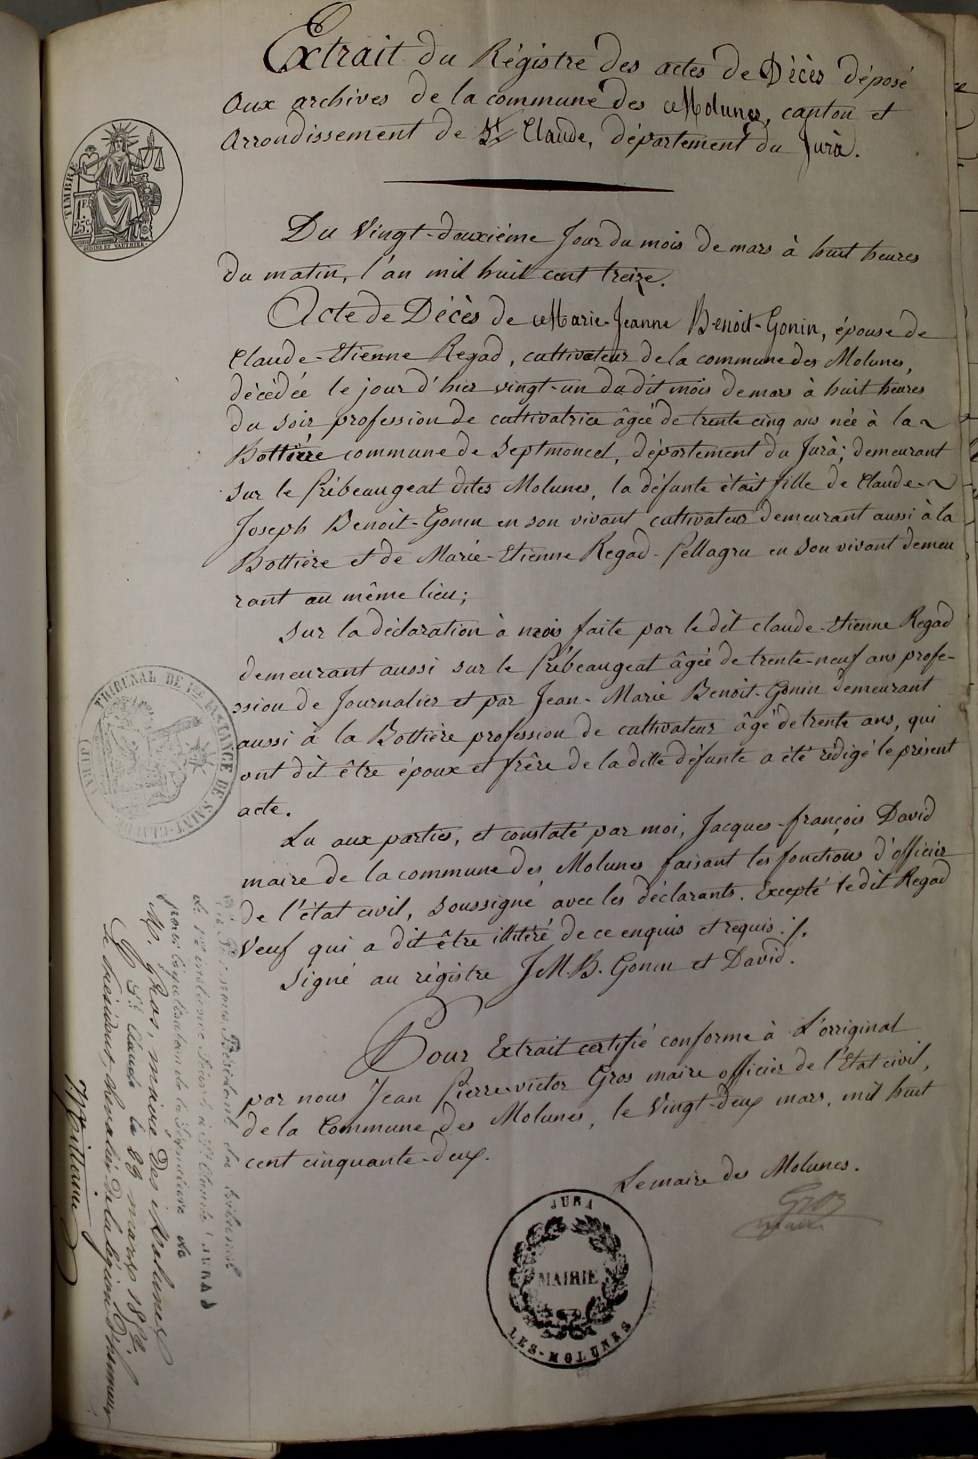 Extrait du Régistre des actes de Décès déposé
aux archives de la commune des Molunes, canton et
Arrondissement de St Claude, département du Jura.
TIMBRE
1F.
25c.
Du Vingt-deuxième Jour du mois de mars à huit heures
du matin, l'an mil huit cent treize.
Acte de Décès de Marie-Jeanne Benoit-Gonin, épouse de
Claude-Etienne Regad, cultivateur de la commune des Molunes,
décédée le jour d'hier vingt-un du dit mois de mars à huit heures
du soir profession de cultivatrice âgée de trente cinq ans née à la
Bottière commune de Septmoncel, département du Jura; demeurant
sur le Prébeaugeat dites Molunes, la défunte était fille de Claude-
Joseph Benoit-Gonin en son vivant cultivateur demeurant aussi à la
Bottière et de Marie-Etienne Regad-Pellagru en son vivant demeu
rant au même lieu;
Sur la déclaration à mois faite par le dit Claude-Etienne Regad
demeurant aussi sur le Prébeaugeat âgée de trente-neuf ans profe-
ssion de Journalier et par Jean-Marie Benoit-Gonin demeurant
aussi à la Bottière profession de cultivateur âgé de trente ans, qui
ont dit être époux et frêre de la ditte défunte a été rédigé le présent
acte.
Lu aux parties, et constaté par moi, Jacques-françois David
maire de la commune des Molunes faisant les fonctions d'officier
de l'état civil, soussigné avec les déclarants. Excepté le dit Regad
Veuf qui a dit être illitéré de ce enquis et requis ./.
Signé au régistre J M. B. Gonin et David.
Pour Extrait certifié conforme à L'orriginal
par nous Jean Pierre-victor Gros maire officier de l'Etat civil,
de la Commune des Molunes, le Vingt-deux mars, mil huit
cent cinquante-deux.
Le maire des Molunes.
Gros
maire
JURA
MAIRIE
LES-MOLUNES
TRIBUNAL DE 1RE INSTANCE DE SAINT-CLAUDE (JURA)
Président du tribunal
de 1re instance séant à St Claude (JURA)
pour légalisation de la signature de
M. Gros, maire des Molunes
St Claude le 23 mars 1852
Le Président, Chevalier de la légion d'honneur